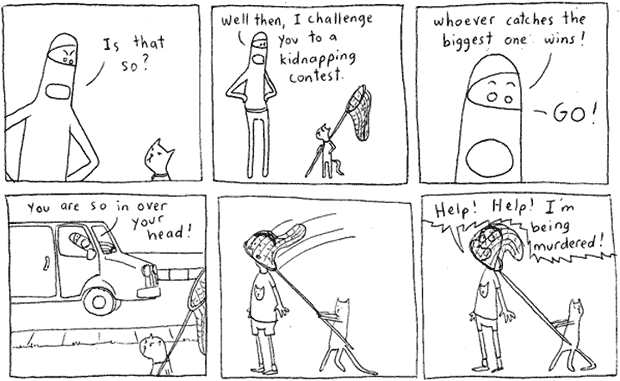 Is that
so?
Well then, I challenge
You to a
kidnapping
contest.
whoever catches the
biggest one wins!
GO!
You are so in over
your
head!
Help! Help! I'm
being
murdered!